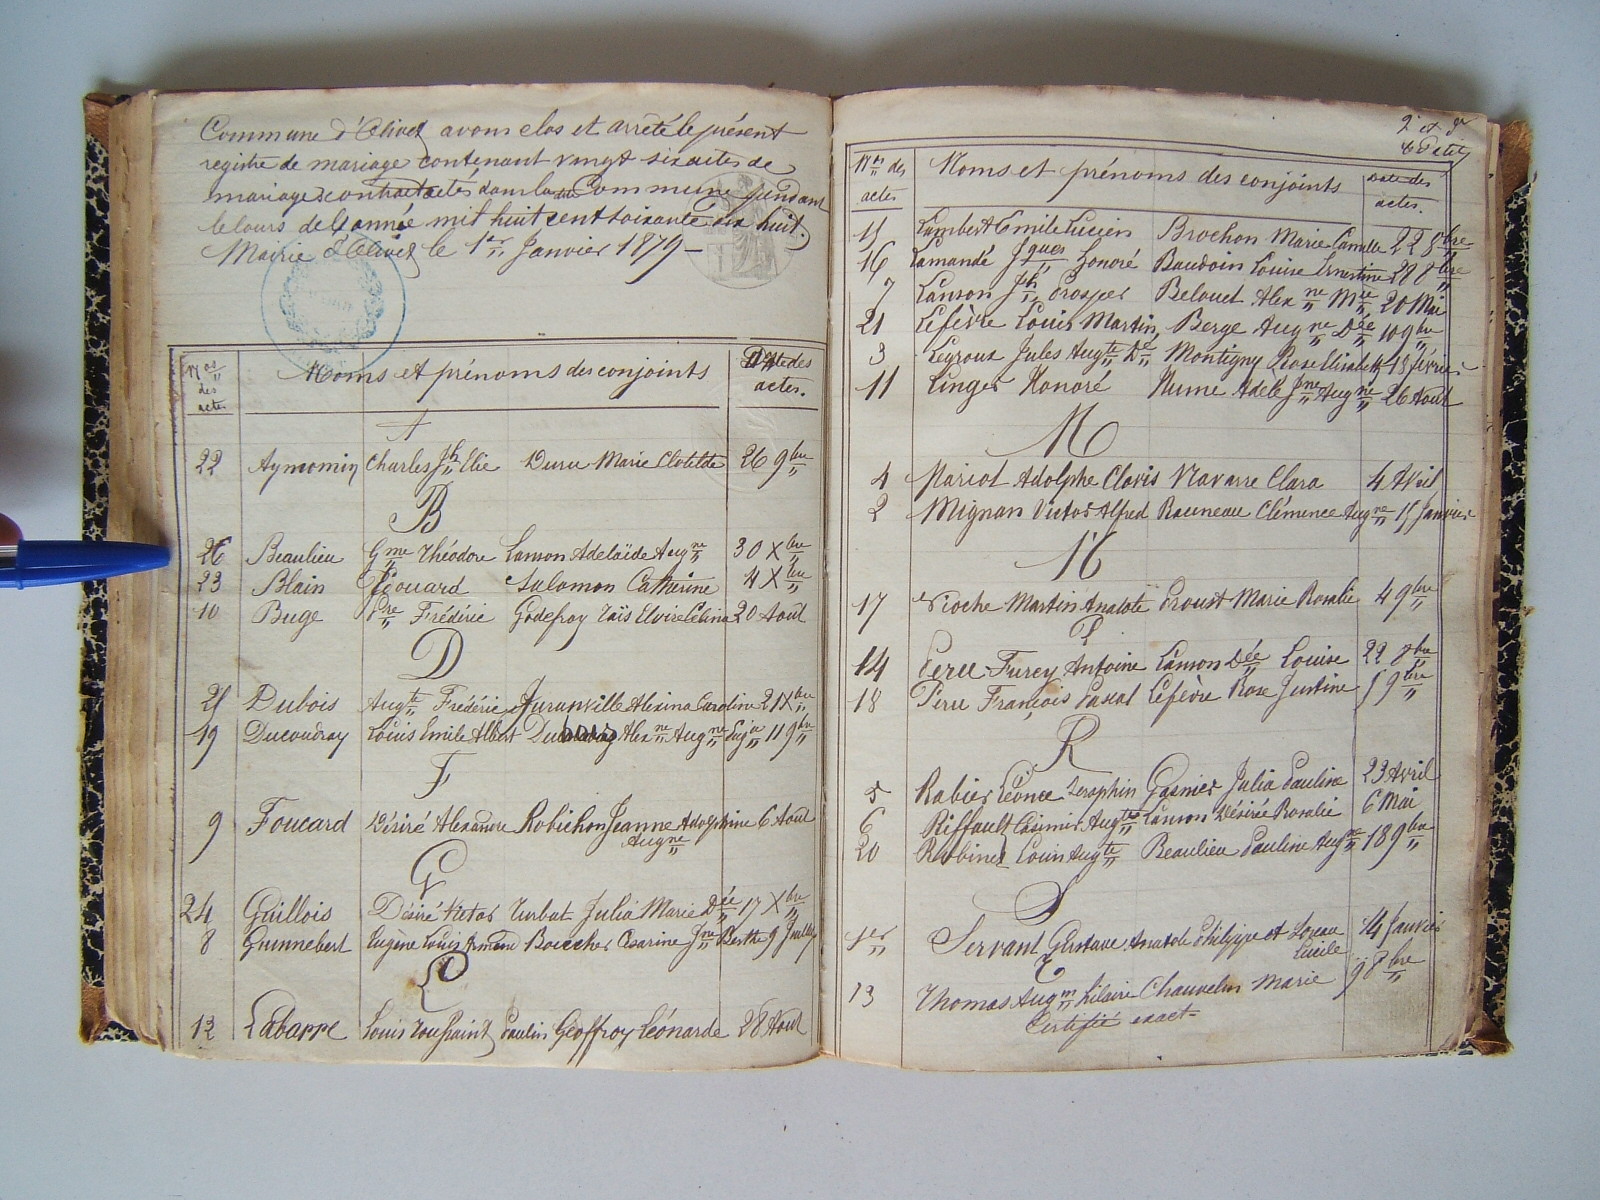 Commune d'Olivet avons clos et arrêté le présent
registre de mariage contenant vingt six actes de
mariages contractés dans la dite Commune pendant
le cours de l'année mil huit cent soixante dix huit.
Mairie d'Olivet le 1er Janvier 1879 -
Nos des actes
Noms et prénoms des conjoints
Date des actes.
A
22 Aymomin Charles Jh Elie Duru Marie Clotilde 26 9bre
B
26 Beaulieu Gme Théodore Lanson Adelaïde Augne 30 Xbre
23 Blain Edouard Salomon Catherine 4 Xbre
10 Buge Pre Frédéric Godefroy Taïs Elvire Célina 20 Aout
D
25 Dubois Augte Frédéric Juranville Alexina Caroline 21 Xbre
19 Ducoudray Louis Emile Albert Alexne Augne Eugie 11 9bre
F
9 Foucard Désiré Alexandre Robichon Jeanne Adolphine 6 Aout
Augne
G
24 Guillois Désiré Victor Turbat Julia Marie Dée 17 Xbre
8 Grinnebert Eugène Louis Armand Boucher Césarine Jne Berthe 9 Juillet
L
12 Labarre Louis Toussaint Paulin Geoffroy Léonarde 28 Aout
2e et
Nos des actes
Noms et prénoms des conjoints
Date des actes.
15 Lambert Emile Lucien Brochon Marie Camille 22 8bre
16 Lamandé Jques Honoré Baudoin Louise Ernestine 28 8bre
7 Lanson Jh Prosper Belouet Alexne Mie 20 Mai
21 Lefèvre Louis Martin Berge Augne Dée 10 9bre
3 Legroux Jules Augte Dé Montigny Rose Elisabeth 18 février
11 Linger Honoré Hume Adèle Jne Augne 26 Aout
M
4 Mariot Adolphe Clovis Navarre Clara 4 Avril
2 Mignan Victor Alfred Rouneau Clémence Augne 15 Janvier
N
17 Nioche Martin Anatole Proust Marie Rosalie 4 9bre
P
14 Peru Furcy Antoine Lanson Dée Louise 22 8bre
18 Peru François Pascal Lefèvre Rose Justine 5 9bre
R
5 Rabier Léonce Seraphin Gasnier Julia Pauline 23 Avril
6 Riffault Casimir Augte Lanson Désirée Rosalie 6 Mai
20 Robinet Louis Augte Beaulieu Pauline Augne 18 9bre
S
1er Servant Gustave Anatole Philippe et Loreau 14 Janvier
Lucile
T
13 Thomas Augin hilaire Chauvelin Marie 9 8bre
Certifié exact